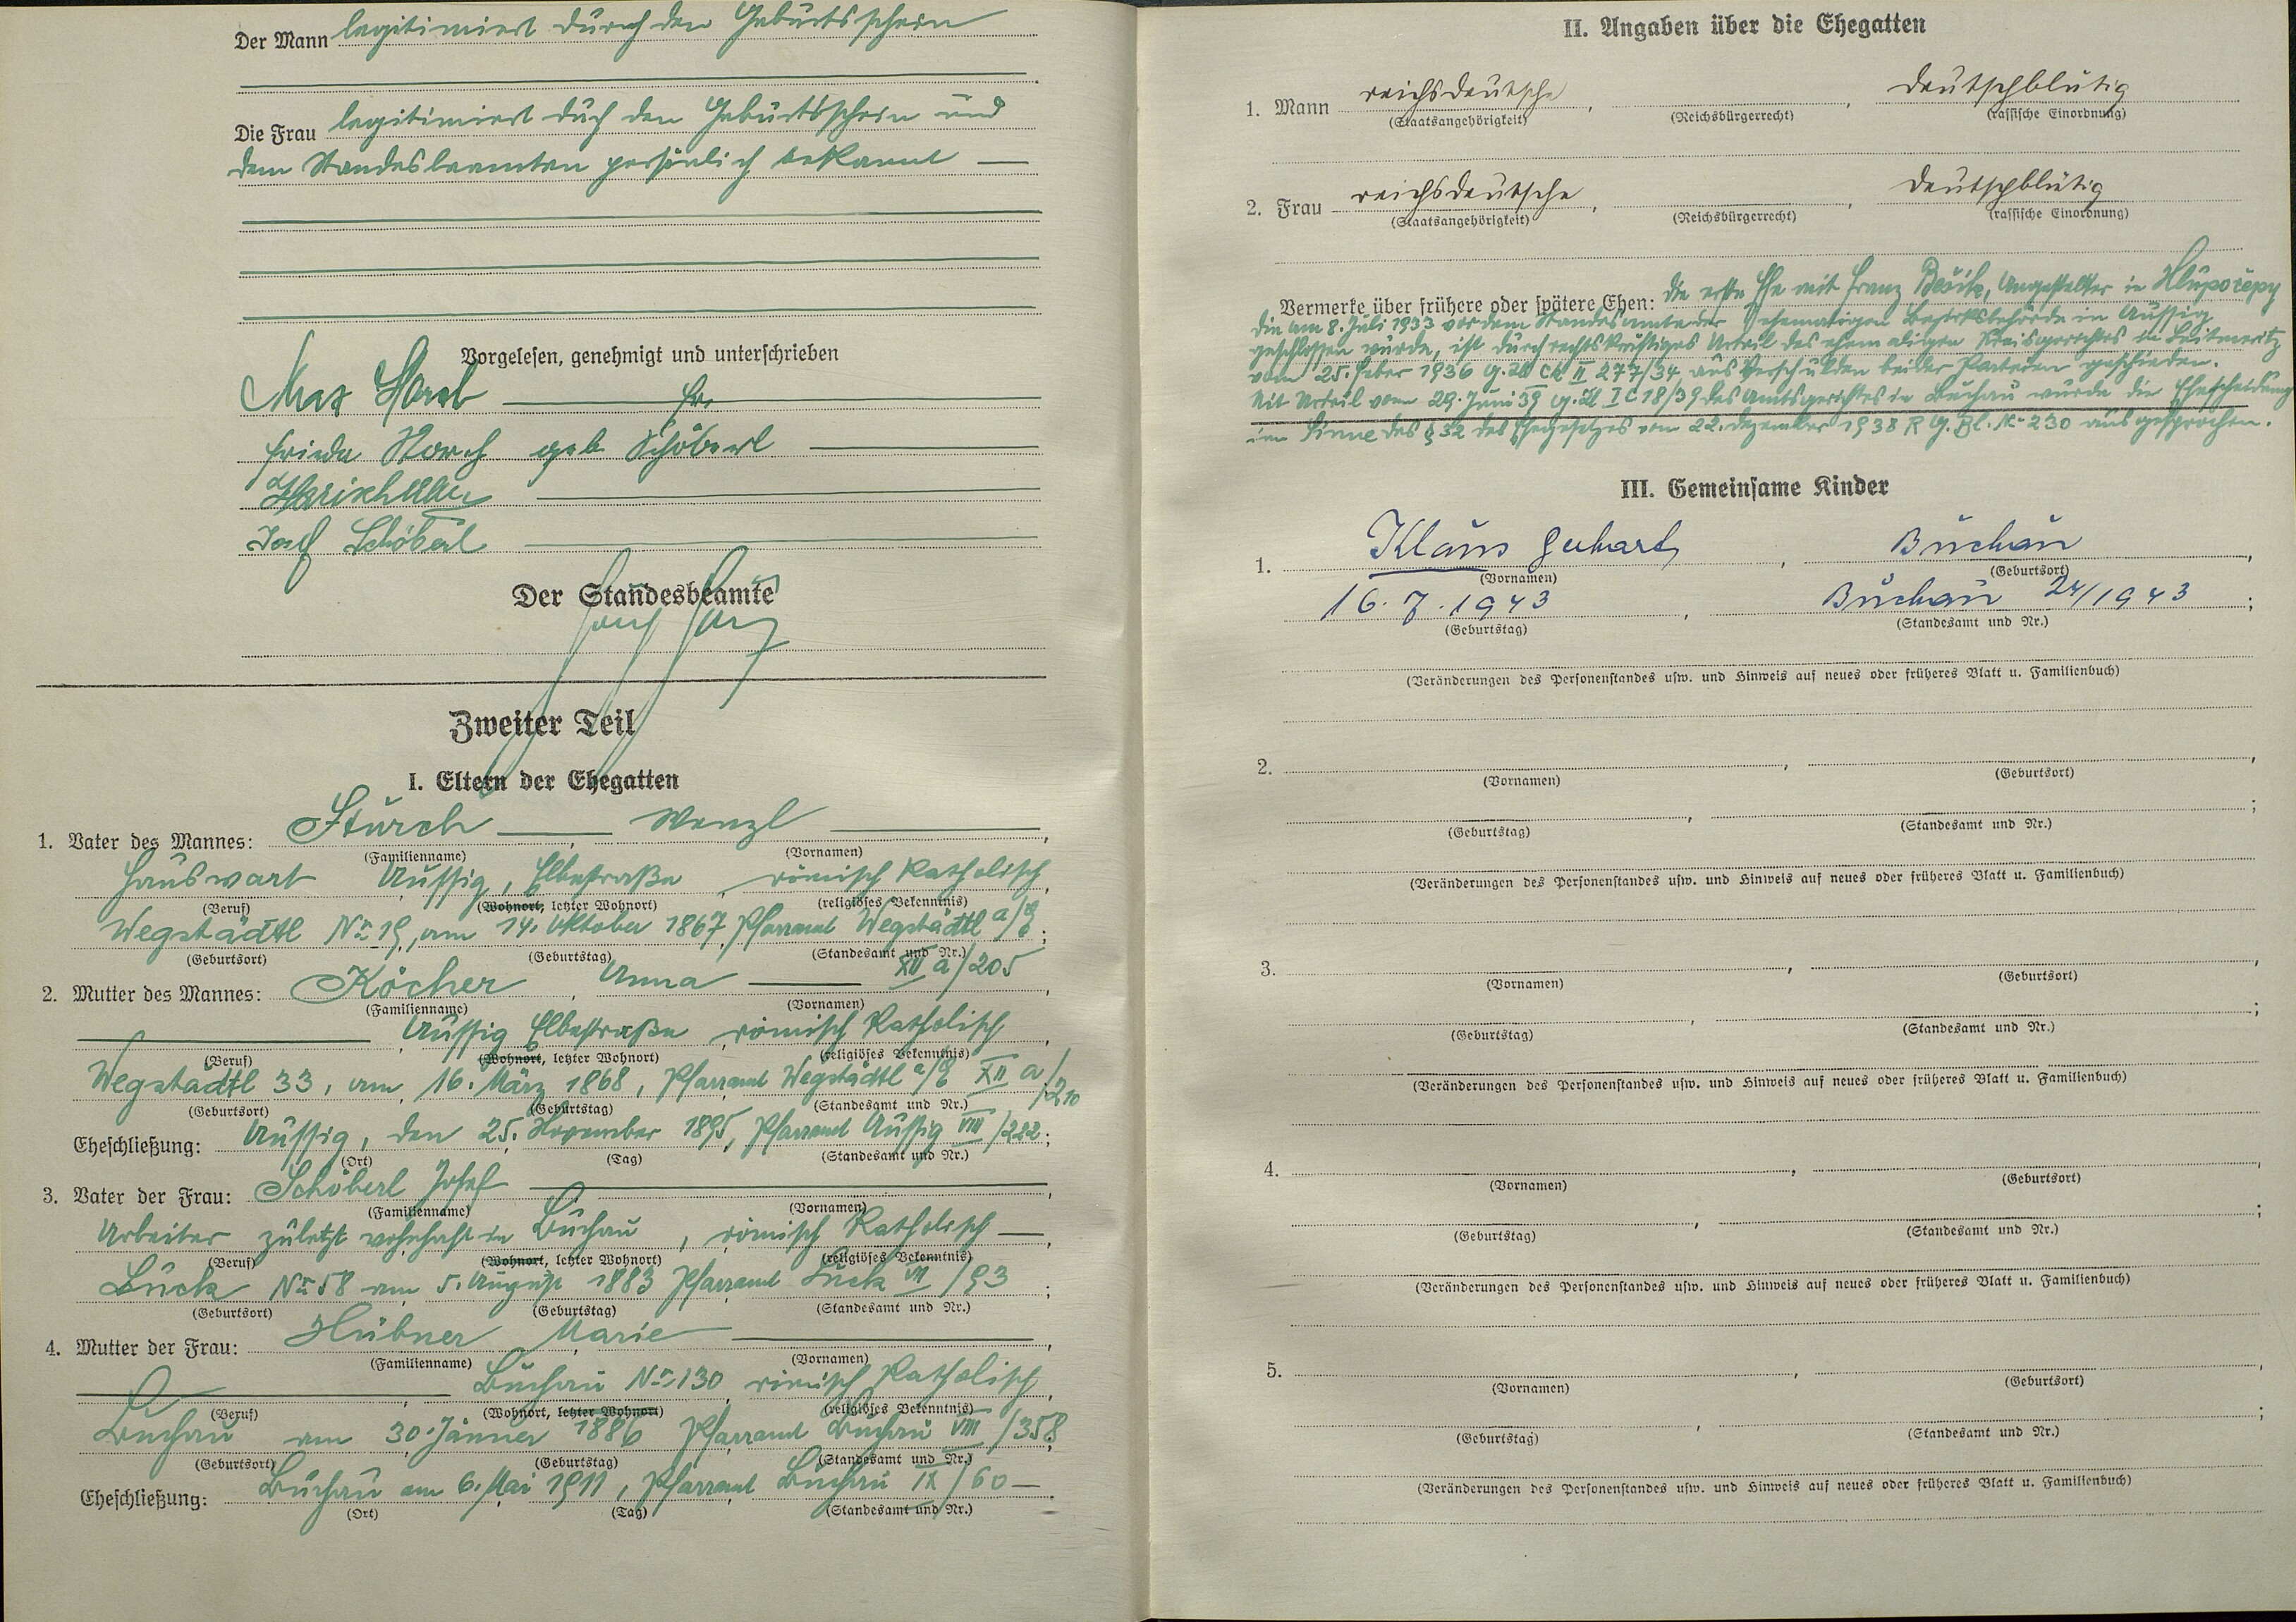 Der Mann legitimiert durch den Geburtsschein
Die Frau legitimiert duch den Geburtsschein und
dem Standesbeamten persönlich bekannt —
Vorgelesen, genehmigt und unterschrieben
Max
Frieda Storch geb Schöberl
Josef Schöberl
Der Standesbeamte
Zweiter Teil
I. Eltern der Ehegatten
1. Vater des Mannes: Sturch Wenzl
(Familienname) (Vornamen)
Hauswart Aussig, Elbestraße, römisch Katholisch,
(Beruf) (Wohnort, letzter Wohnort) (religiöses Bekenntnis)
Wegstädtl No 19, am 14. Oktober 1867 Pfarramt Wegstädtl a/E;
(Geburtsort) (Geburtstag) (Standesamt und Nr.)
XII a/205
2. Mutter des Mannes: Köcher, Anna
(Familienname) (Vornamen)
Aussig Elbestraße, römisch Katholisch,
(Beruf) (Wohnort, letzter Wohnort) (religiöses Bekenntnis)
Wegstädtl 33, am 16. März 1868, Pfarramt Wegstädtl a/E XII a/210
(Geburtsort) (Geburtstag) (Standesamt und Nr.)
Eheschließung: Aussig, den 25. November 1895, Pfarramt Aussig VIII/282;
(Ort) (Tag) (Standesamt und Nr.)
3. Vater der Frau: Schöberl Josef
(Familienname) (Vornamen)
Arbeiter zuletzt wohnhaft in Buchau, römisch Katholisch —,
(Beruf) (Wohnort, letzter Wohnort) (religiöses Bekenntnis)
Luck No 58 am 5. August 1883 Pfarramt Luck VII/93;
(Geburtsort) (Geburtstag) (Standesamt und Nr.)
4. Mutter der Frau: Hübner, Marie
(Familienname) (Vornamen)
Buchau No 130, römisch Katholisch,
(Beruf) (Wohnort, letzter Wohnort) (religiöses Bekenntnis)
Buchau am 30. Jänner 1886 Pfarramt Buchau VIII/358;
(Geburtsort) (Geburtstag) (Standesamt und Nr.)
Eheschließung: Buchau am 6. Mai 1911, Pfarramt Buchau IX/60 —.
(Ort) (Tag) (Standesamt und Nr.)
II. Angaben über die Ehegatten
1. Mann reichsdeutsche, , deutschblütig
(Staatsangehörigkeit) (Reichsbürgerrecht) (rassische Einordnung)
2. Frau reichsdeutsche, , deutschblütig
(Staatsangehörigkeit) (Reichsbürgerrecht) (rassische Einordnung)
Vermerke über frühere oder spätere Ehen: die erste Ehe mit Franz Angestellter in Hlupočepy
die am 8. Juli 1933 vor dem Standesamte der ehemaligen Bezirksbehörde in Aussig
geschlossen wurde, ist durch rechtskräftiges Urteil des ehemaligen Kreisgerichtes in Leitmeritz
vom 25. Feber 1936 G. Zl Ck II 277/34, aus Verschulden beider Parteien geschieden.
Mit Urteil vom 29. Juni 39 G. Zl I C 18/39 des Amtsgerichtes in Buchau wurde die Ehescheidung
im Sinne des § 32 des Ehegesetzes vom 22. Dezember 1938 R G. Bl. No 230 ausgesprochen.
III. Gemeinsame Kinder
1. Klaus Gerhart, Buchau,
(Vornamen) (Geburtsort)
16.7.1943, Buchau 24/1943;
(Geburtstag) (Standesamt und Nr.)
(Veränderungen des Personenstandes usw. und Hinweis auf neues oder früheres Blatt u. Familienbuch)
2. , ,
(Vornamen) (Geburtsort)
(Geburtstag) (Standesamt und Nr.)
(Veränderungen des Personenstandes usw. und Hinweis auf neues oder früheres Blatt u. Familienbuch)
3. , ,
(Vornamen) (Geburtsort)
(Geburtstag) (Standesamt und Nr.)
(Veränderungen des Personenstandes usw. und Hinweis auf neues oder früheres Blatt u. Familienbuch)
4. , ,
(Vornamen) (Geburtsort)
(Geburtstag) (Standesamt und Nr.)
(Veränderungen des Personenstandes usw. und Hinweis auf neues oder früheres Blatt u. Familienbuch)
5. , ,
(Vornamen) (Geburtsort)
(Geburtstag) (Standesamt und Nr.)
(Veränderungen des Personenstandes usw. und Hinweis auf neues oder früheres Blatt u. Familienbuch)